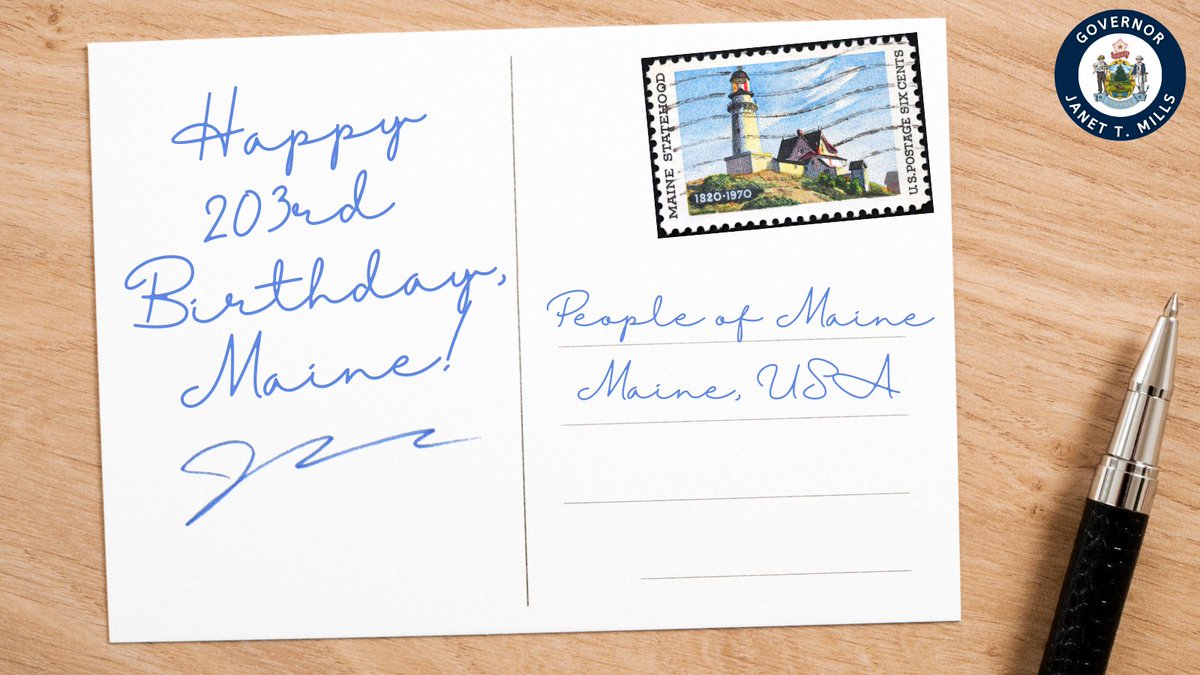 Happy
203rd
Birthday,
Maine!
MAINE STATEHOOD
1820·1970
U.S. POSTAGE SIX CENTS
People of Maine
Maine, USA
GOVERNOR
JANET T. MILLS